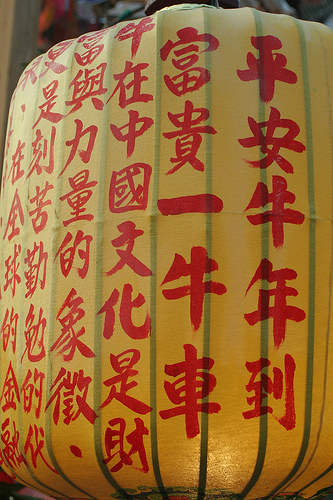 平安牛年到
富貴一牛車
牛在中國文化是財
富與力量的象徵，
是刻苦勤勉的代
在全球的金融